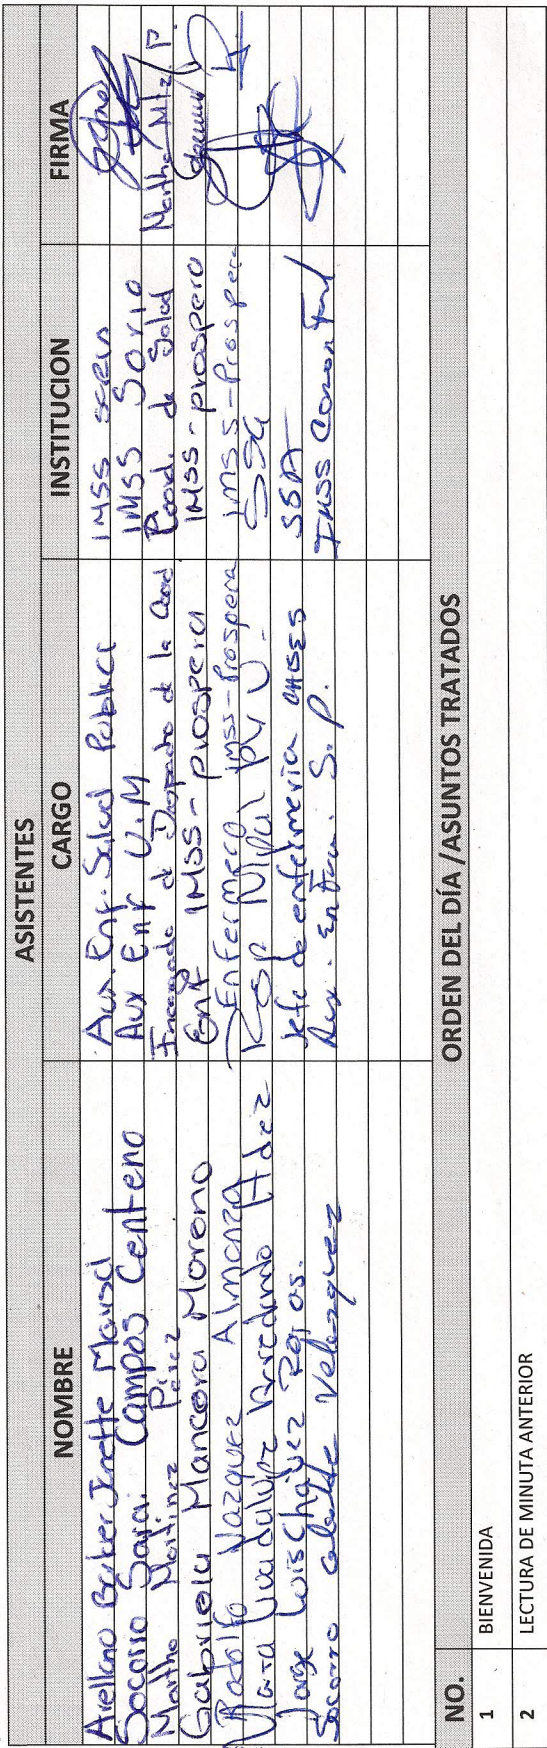 ASISTENTES
NOMBRE CARGO INSTITUCION FIRMA
Arellano Janette Marisol Aux. Enf. Salud Publica IMSS
Socorro Sarai Campos Centeno Aux Enf U.M IMSS
Martha Martinez Perez de la Coord. de Salud Martha Mtz. P.
Gabriela Mancera Moreno Enf IMSS-prospera IMSS-prospera
Rodolfo Vazquez Almanza Enfermero IMSS-Prospera IMSS-Prospera
Maria Guadalupe Arredondo Hdez
Jorge Luis Chávez Rojas. Jefe de enfermería SSA
Socorro Velazquez Aux. S.P. IMSS
ORDEN DEL DÍA /ASUNTOS TRATADOS
NO.
1 BIENVENIDA
2 LECTURA DE MINUTA ANTERIOR